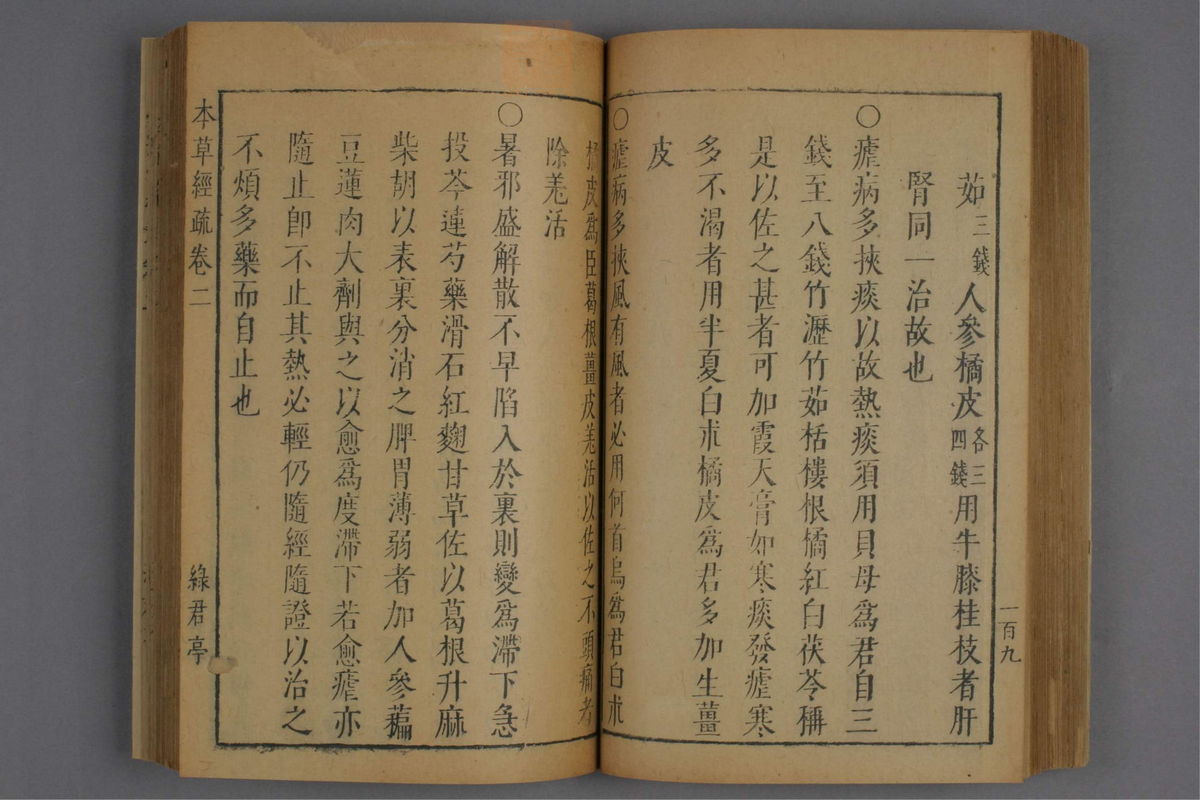 茹三錢人參橘皮各三四錢用牛膝桂枝者肝
腎同一治故也
○瘧病多挾痰以故熱痰須用貝母爲君自三
錢至八錢竹瀝竹茹栝樓根橘紅白茯苓稱
是以佐之甚者可加霞天膏如寒痰發瘧寒
多不渴者用半夏白朮橘皮爲君多加生薑
皮
○瘧病多挾風有風者必用何首烏爲君白朮
一百九
橘皮爲臣葛根薑皮羗活以佐之不頭痛者
除羗活
○暑邪盛解散不早陷入於裏則變爲滯下急
投芩連芍藥滑石紅麴甘草佐以葛根升麻
柴胡以表裏分消之脾胃薄弱者加人參藊
豆蓮肉大劑與之以愈爲度滯下若愈瘧亦
隨止卽不止其熱必輕仍隨經隨證以治之
不煩多藥而自止也
本草經疏卷二
綠君亭